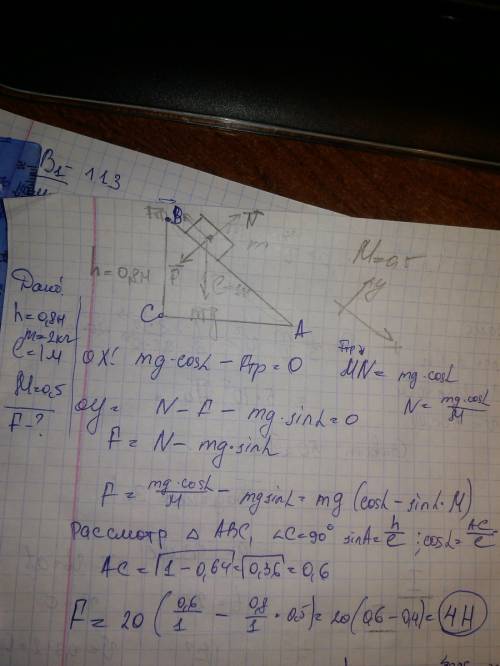 B₁ - 113
B
N
m
M=0,5
h = 0,8м
F
l=1м
y
mg
x
C
A
Дано:
h=0,8м
m=2кг
l=1м
M=0,5
F-?
OX: mg·cosL - Fтр = 0
Fтр
MN = mg·cosL
N = mg·cosL/M
OY = N - F - mg·sinL = 0
F = N - mg·sinL
F = mg·cosL/M - mgsinL = mg (cosL - sinL·M)
Рассмотр △ ABC, ∠C=90° sinA= h/l ; cosL= AC/l
AC = √1-0,64 = √0,36 = 0,6
F = 20 (0,6/1 - 0,8/1 · 0,5) = 20(0,6-0,4) = 4H